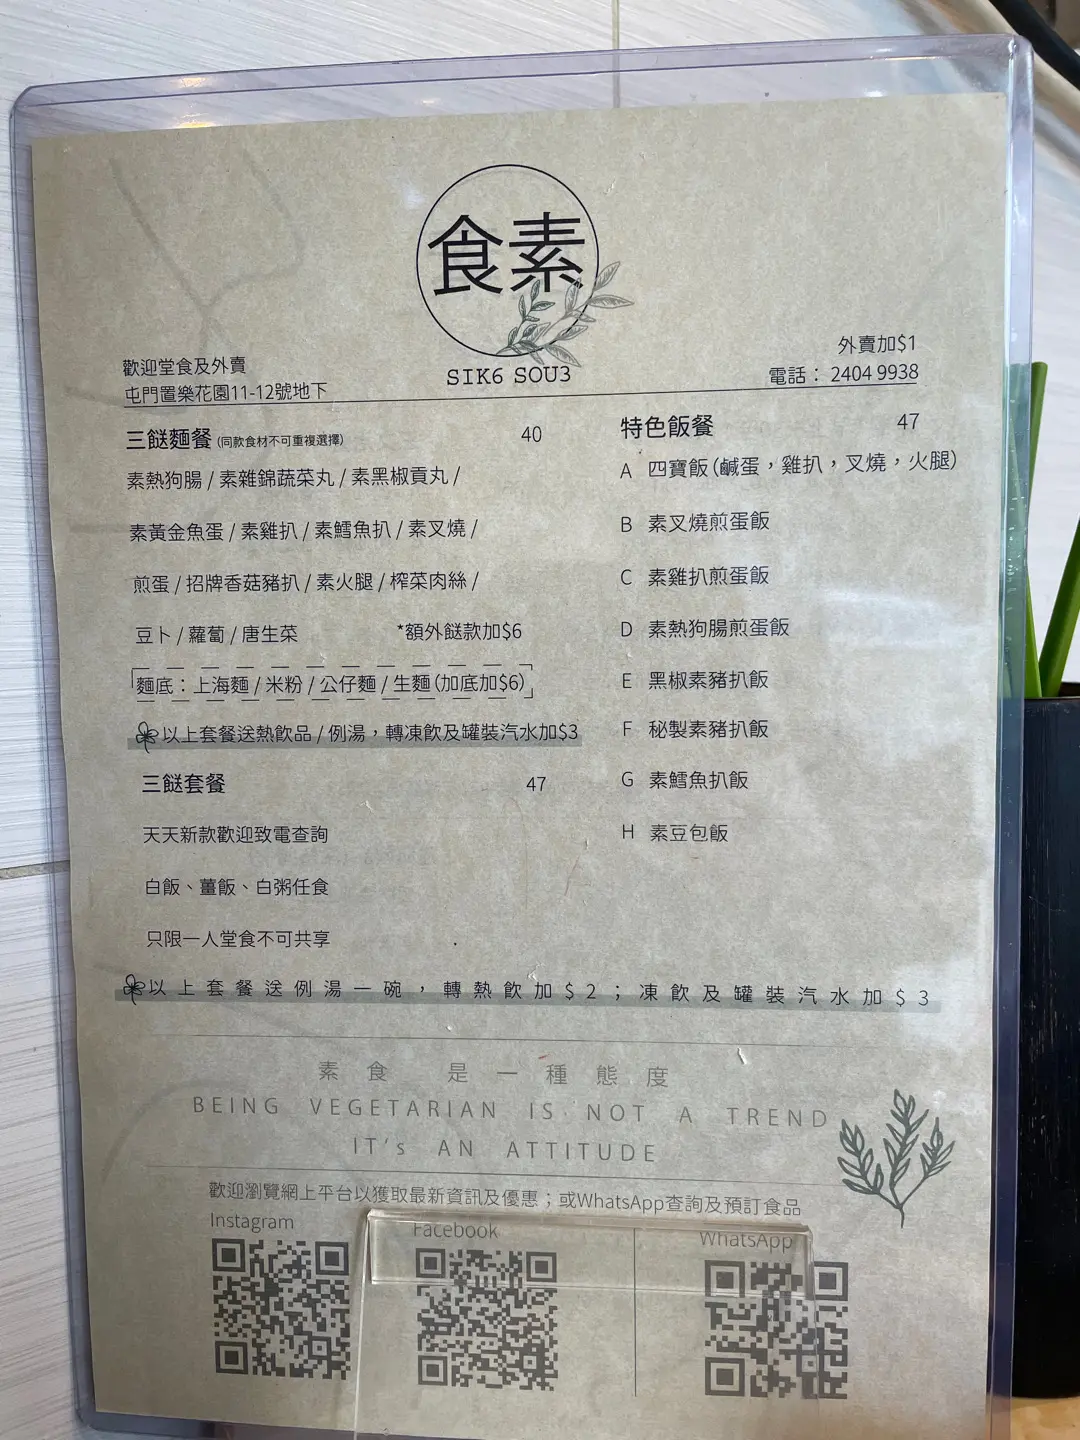 食素
SIK6 SOU3
歡迎堂食及外賣
屯門置樂花園11-12號地下
外賣加$1
電話： 2404 9938
三餸麵餐 (同款食材不可重複選擇) 40
素熱狗腸 / 素雜錦蔬菜丸 / 素黑椒貢丸 /
素黃金魚蛋 / 素雞扒 / 素鱈魚扒 / 素叉燒 /
煎蛋 / 招牌香菇豬扒 / 素火腿 / 榨菜肉絲 /
豆卜 / 蘿蔔 / 唐生菜 *額外餸款加$6
麵底：上海麵 / 米粉 / 公仔麵 / 生麵 (加底加$6)
以上套餐送熱飲品 / 例湯，轉凍飲及罐裝汽水加$3
三餸套餐 47
天天新款歡迎致電查詢
白飯、薑飯、白粥任食
只限一人堂食不可共享
特色飯餐 47
A 四寶飯 (鹹蛋，雞扒，叉燒，火腿)
B 素叉燒煎蛋飯
C 素雞扒煎蛋飯
D 素熱狗腸煎蛋飯
E 黑椒素豬扒飯
F 秘製素豬扒飯
G 素鱈魚扒飯
H 素豆包飯
以上套餐送例湯一碗，轉熱飲加$2；凍飲及罐裝汽水加$3
素食 是一種態度
BEING VEGETARIAN IS NOT A TREND
IT's AN ATTITUDE
歡迎瀏覽網上平台以獲取最新資訊及優惠；或WhatsApp查詢及預訂食品
Instagram
Facebook
WhatsApp